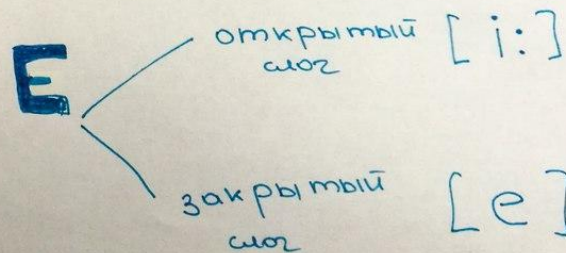 открытый [i:]
слог
E
закрытый [e]
слог